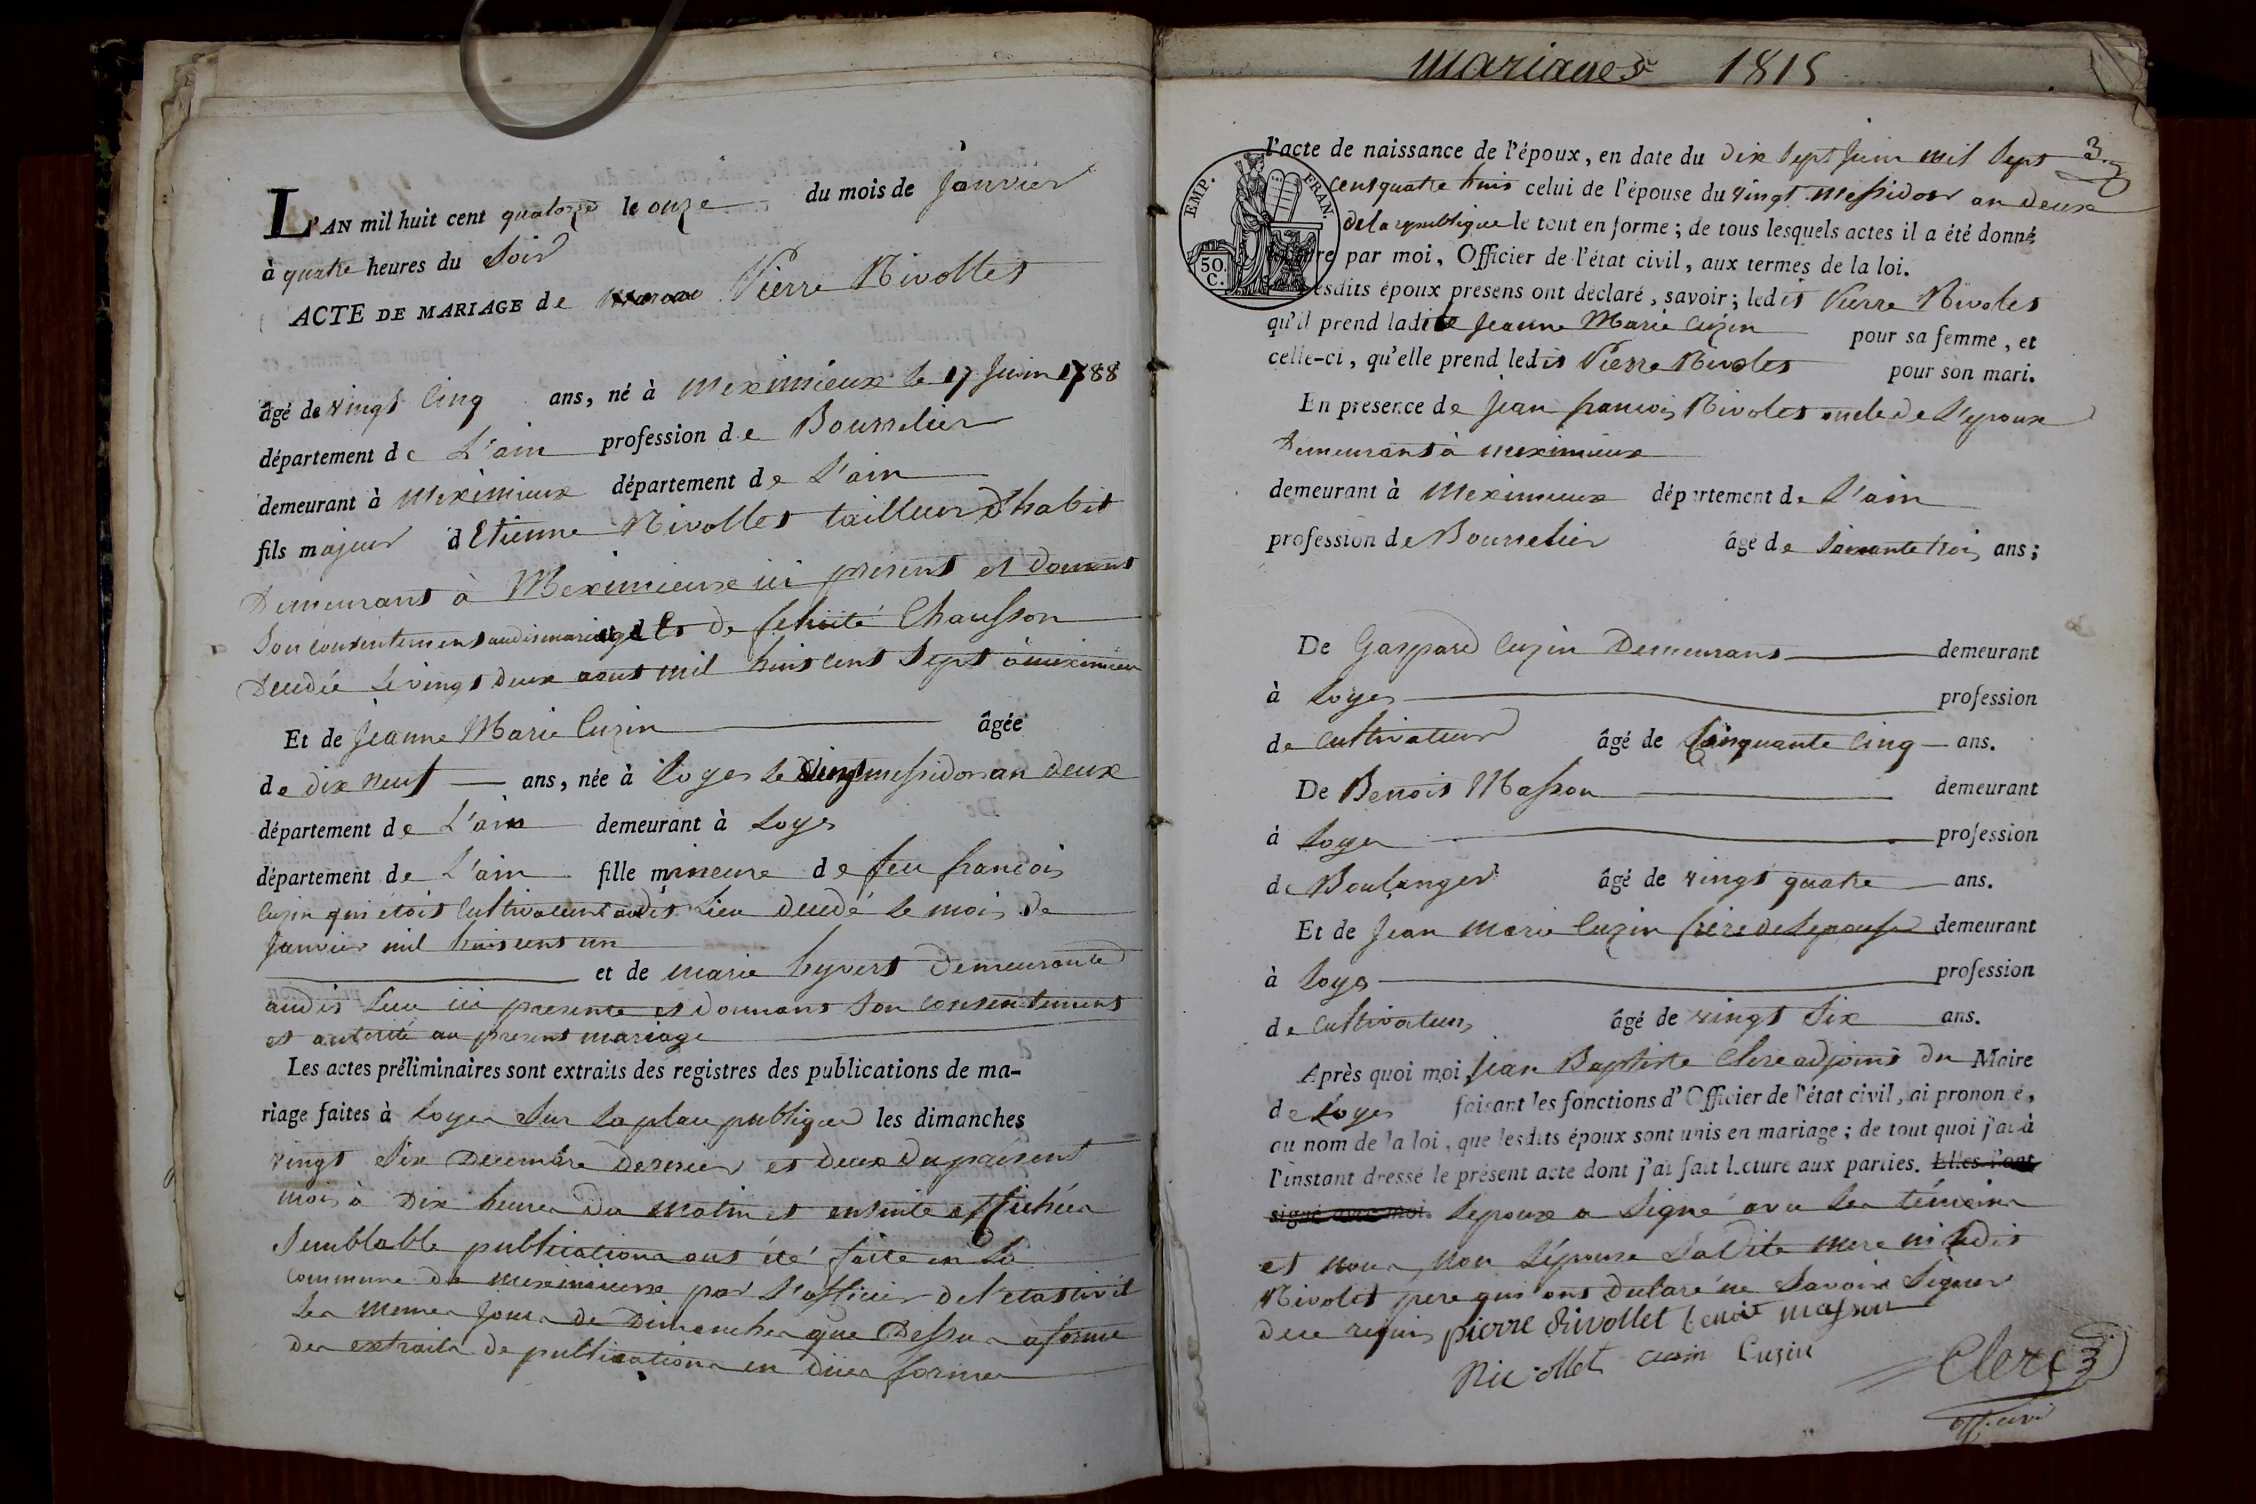 L'AN mil huit cent quatorze le onze du mois de Janvier
à quatre heures du Soir
ACTE DE MARIAGE de Pierre Rivollet
âgé de vingt Cinq ans, né à Meximieux le 17 Juin 1788
département de L'ain profession de Bourrelier
demeurant à Meximieux département de L'ain
fils majeur d'Etienne Rivollet tailleur D'habit
Demeurant à Meximieux ici présent et Donnant
Son Consentement audit mariage Et de felicité Chausson
Decedée Le vingt Deux aout mil huit cent Sept à meximieux
Et de Jeanne Marie Cuzin âgée
de dix neuf ans, née à Loyes Le Vingt messidor an deux
département de L'ain demeurant à Loyes
département de L'ain fille mineure de feu francois
Cuzin qui etoit Cultivateur audit Lieu Decedé Le mois De
Janvier mil huit cent un
et de marie hyvert Demeurante
audit Lieu ici presente et Donnant Son Consentement
et autorité au present mariage
Les actes préliminaires sont extraits des registres des publications de ma-
riage faites à Loyes Sur La place publique les dimanches
vingt Six Decembre Dernier et Deux Du présent
mois à Dix heures Du Matin et ensuite affichées
Semblable publications ont été faite en La
Commune de meximieux par L'officier de l'etat civil
Les Memes Jours de Dimanches que Dessus à forme
Des extraits de publications en Dues formes
Mariages 1815
3
l'acte de naissance de l'époux, en date du Dix Sept Juin mil Sept
Cent quatre huit celui de l'épouse du vingt Messidor an Deux
De la republique le tout en forme ; de tous lesquels actes il a été donné
EMP. FRAN.
50 C.
lecture par moi, Officier de l'état civil, aux termes de la loi.
Lesdits époux presens ont déclaré, savoir ; ledit Pierre Rivolet
qu'il prend ladite Jeanne Marie Cuzin pour sa femme, et
celle-ci, qu'elle prend ledit Pierre Rivolet pour son mari.
En présence de Jean francois Rivolet oncle de L'epoux
Demeurant à meximieux
demeurant à Meximieux département de L'ain
profession de Bourrelier âgé de Soixante trois ans ;
De Gaspard Cuzin Demeurant demeurant
à Loyes profession
de Cultivateur âgé de Cinquante Cinq ans.
De Benoit Masson demeurant
à Loyes profession
de Boulanger âgé de vingt quatre ans.
Et de Jean Marie Cuzin frere de Lepouse demeurant
à Loyes profession
de Cultivateur âgé de vingt Six ans.
Après quoi moi Jean Baptiste Clerc adjoint Du Maire
de Loyes faisant les fonctions d'Officier de l'état civil, ai prononcé,
au nom de la loi, que lesdits époux sont unis en mariage ; de tout quoi j'ai à
l'instant dressé le présent acte dont j'ai fait lecture aux parties. Elles l'ont
signé avec moi. Lepoux a Signé avec Les témoins
et nous, Non L'épouse Sadite mere ni Ledit
Rivolet pere qui ont Declaré ne Savoir Signer
De ce requis pierre Rivollet benoit masson
Rivollet Cuzin Clerc
off. civil